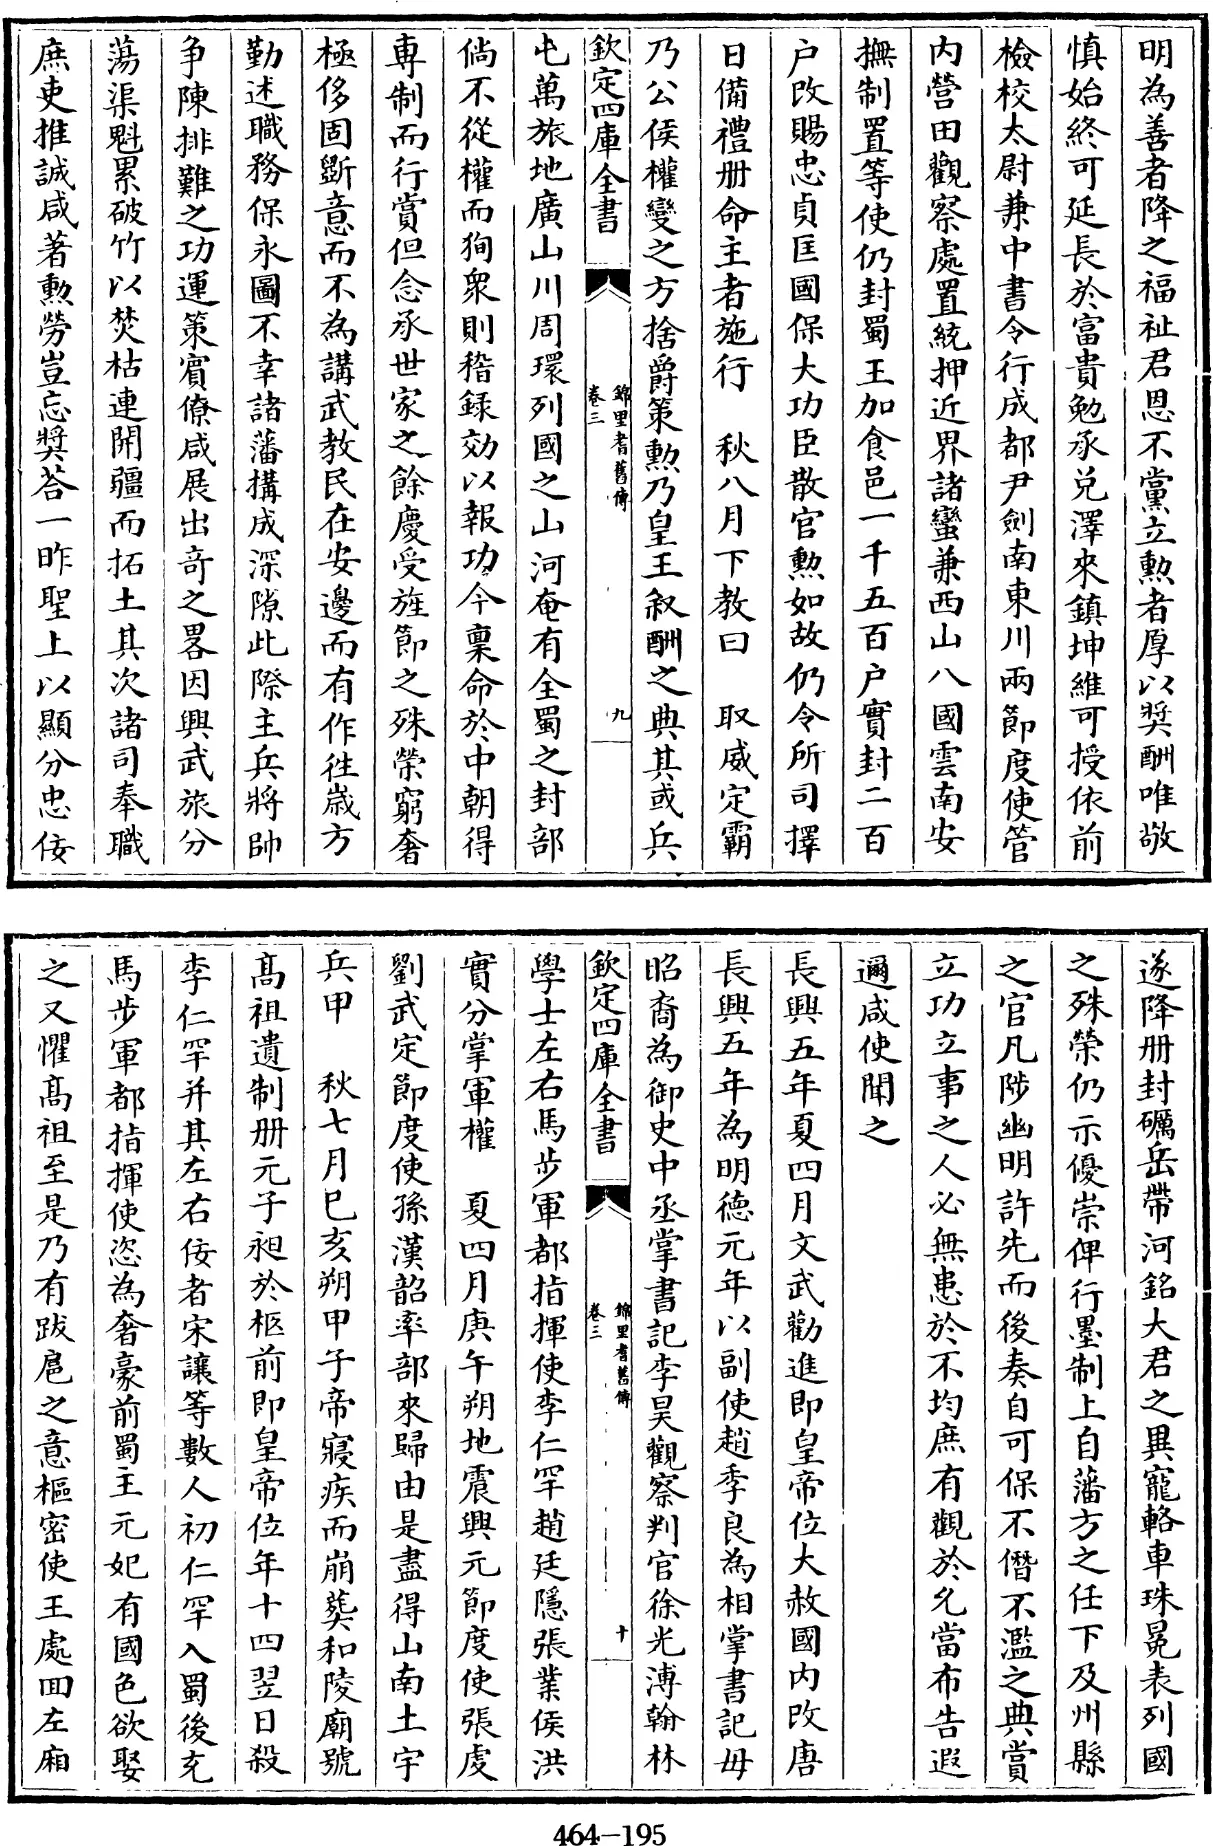 明為善者降之福祉君恩不黨立勲者厚以奨酬唯敬
慎始終可延長於富貴勉承兑澤來鎮坤維可授依前
檢校太尉兼中書令行成都尹劍南東川兩節度使管
内營田觀察處置統押近界諸蠻兼西山八國雲南安
撫制置等使仍封蜀王加食邑一千五百户實封二百
户改賜忠貞匡國保大功臣散官勲如故仍令所司擇
日備禮册命主者施行　秋八月下教曰　取威定霸
乃公侯權變之方捨爵策勲乃皇王叙酬之典其或兵
欽定四庫全書
錦里耆舊傳
卷三
九
屯萬旅地廣山川周環列國之山河奄有全蜀之封部
倘不從權而狥衆則稽録効以報功今稟命於中朝得
専制而行賞但念承世家之餘慶受旌節之殊榮窮奢
極侈固斷意而不為講武教民在安邊而有作往嵗方
勤述職務保永圖不幸諸藩搆成深隙此際主兵將帥
争陳排難之功運策賔僚咸展出奇之畧因興武旅分
蕩渠魁累破竹以焚枯連開疆而拓土其次諸司奉職
庶吏推誠咸著勲勞豈忘奨荅一昨聖上以顯分忠佞
遂降册封礪岳帶河銘大君之異寵輅車珠冕表列國
之殊榮仍示優崇俾行墨制上自藩方之任下及州縣
之官凡陟幽明許先而後奏自可保不僭不濫之典賞
立功立事之人必無患於不均庶有觀於允當布告遐
邇咸使聞之
長興五年夏四月文武勸進即皇帝位大赦國内改唐
長興五年為明德元年以副使趙季良為相掌書記毋
昭裔為御史中丞掌書記李昊觀察判官徐光溥翰林
欽定四庫全書
錦里耆舊傳
卷三
十
學士左右馬步軍都指揮使李仁罕趙廷隱張業侯洪
實分掌軍權　夏四月庚午朔地震興元節度使張虔
劉武定節度使孫漢韶率部來歸由是盡得山南土宇
兵甲　秋七月巳亥朔甲子帝寢疾而崩葬和陵廟號
髙祖遺制册元子昶於柩前即皇帝位年十四翌日殺
李仁罕并其左右佞者宋讓等數人初仁罕入蜀後充
馬步軍都指揮使恣為奢豪前蜀主元妃有國色欲娶
之又懼髙祖至是乃有跋扈之意樞密使王處回左廂
464—195